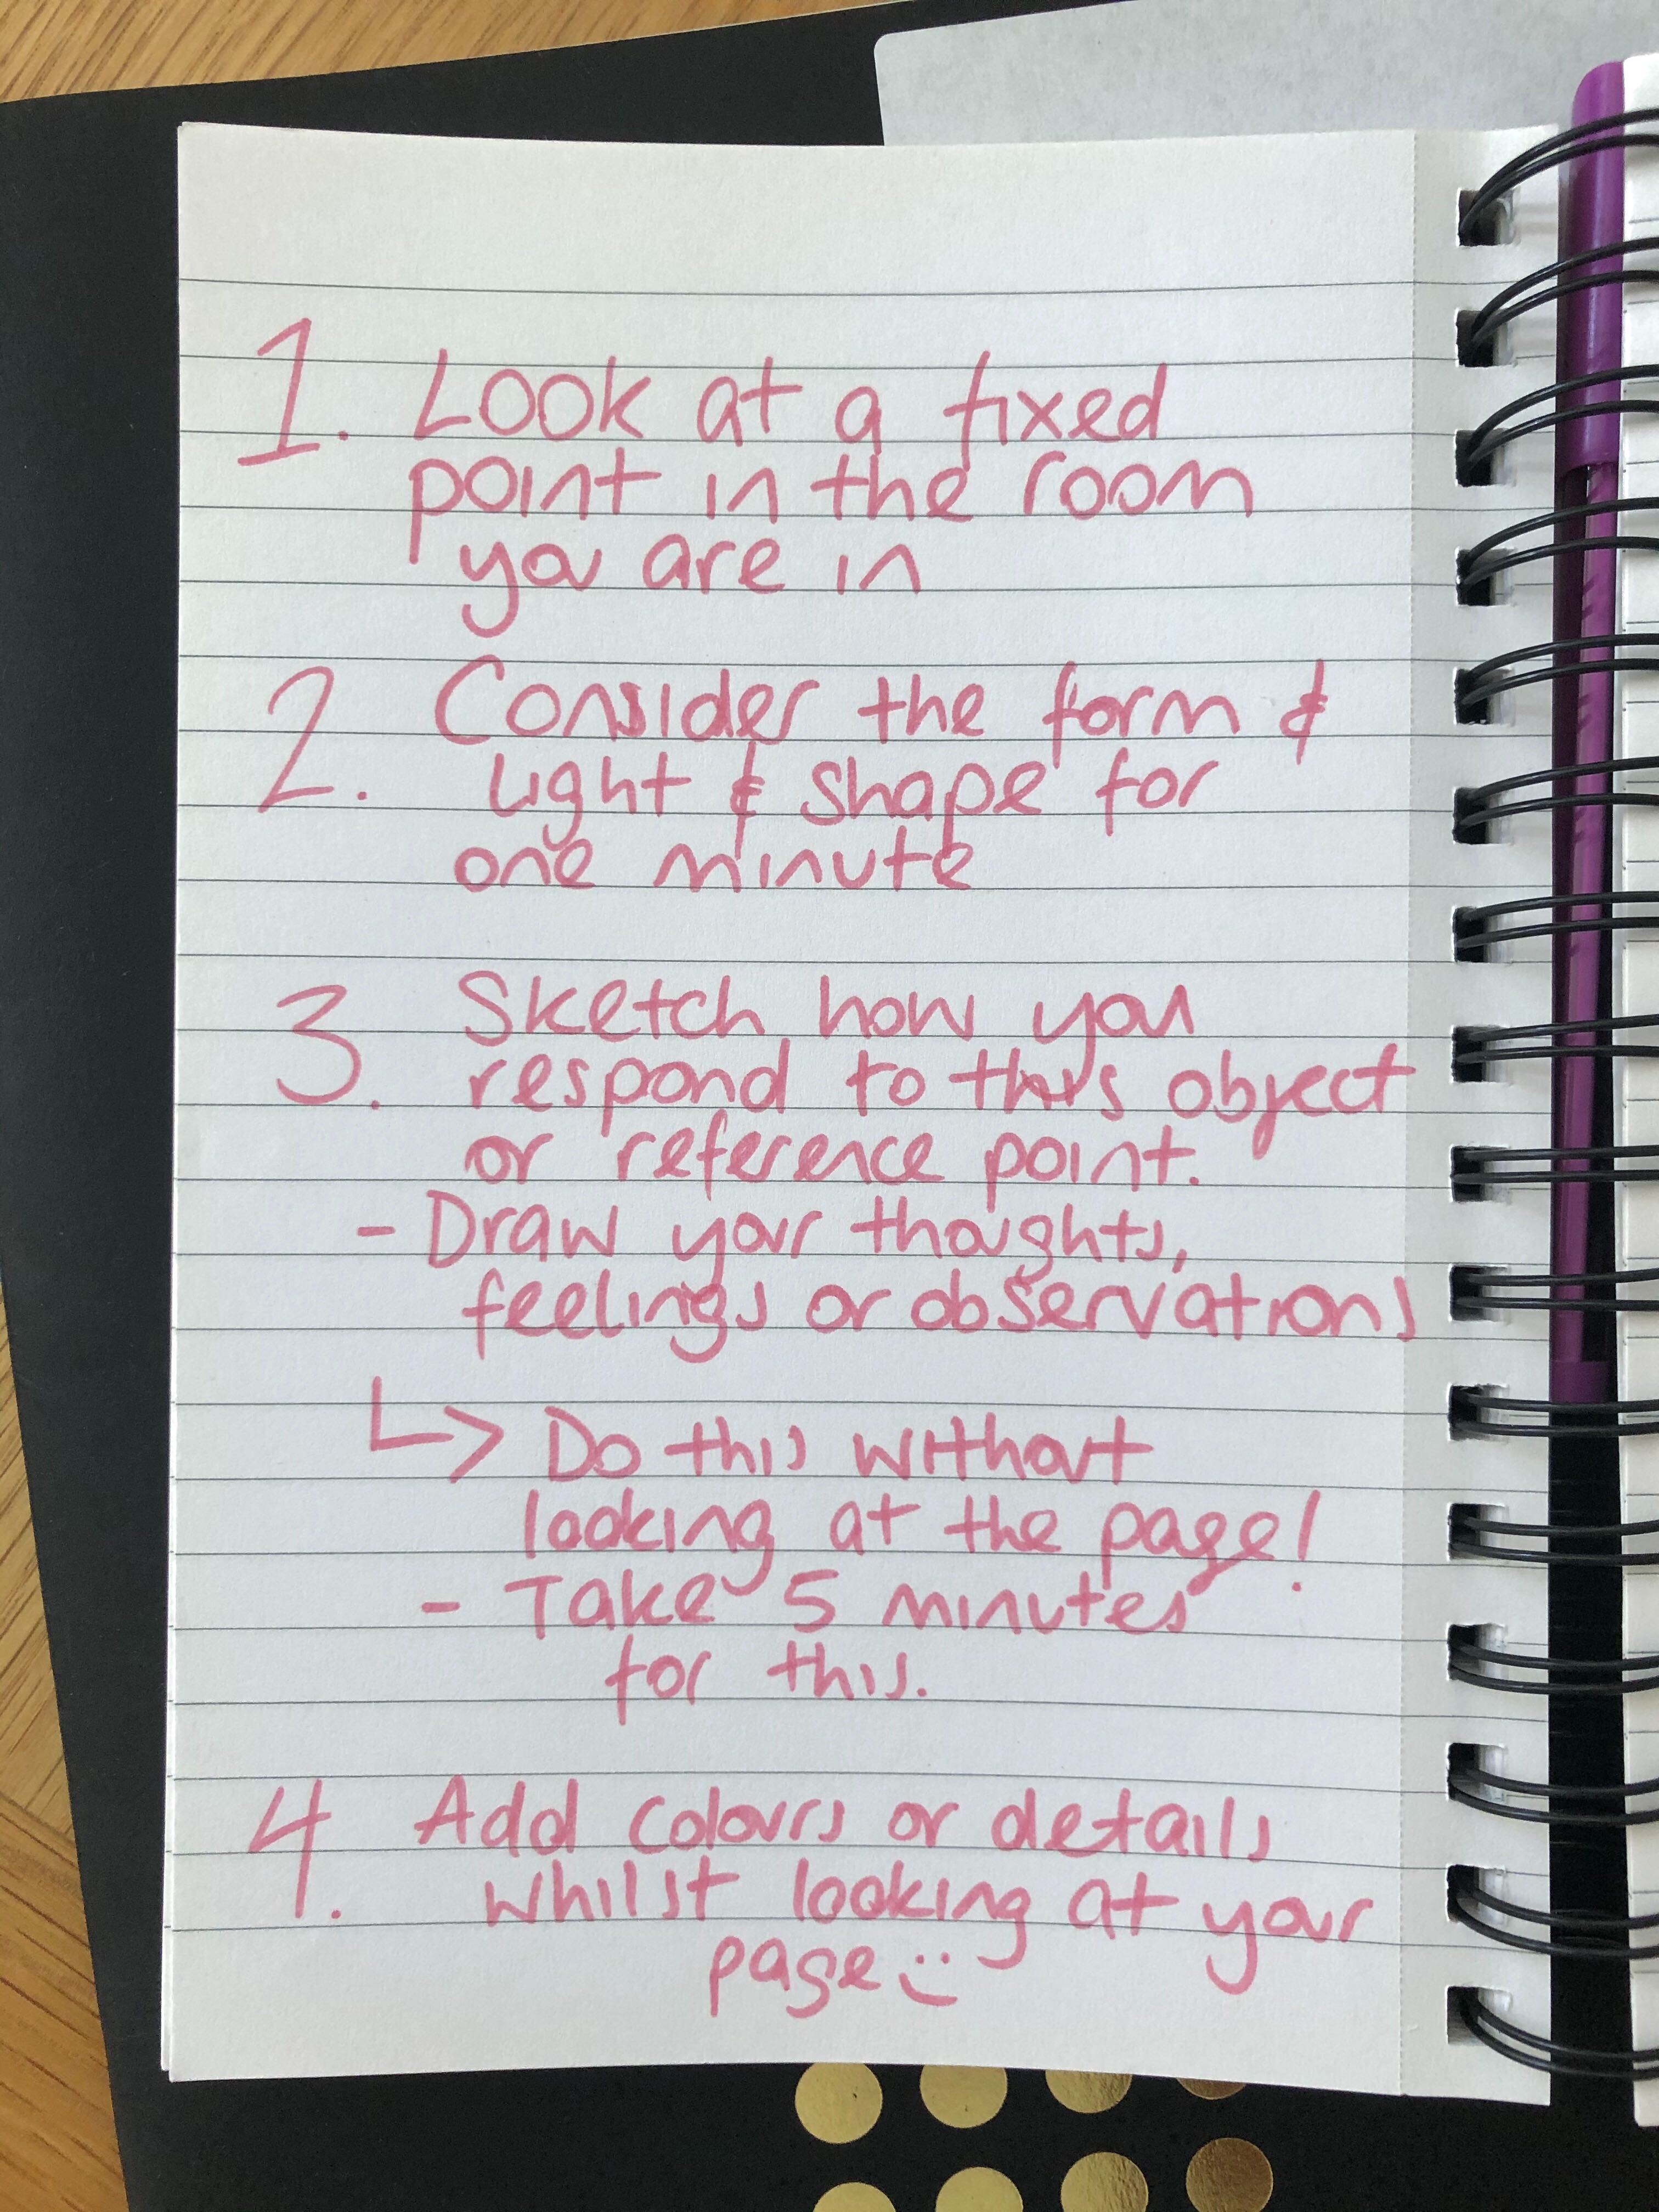 1. Look at a fixed
point in the room
you are in
2. Consider the form &
light & shape for
one minute
3. Sketch how you
respond to this object
or reference point.
- Draw your thoughts,
feelings or observations
↳ Do this without
looking at the page!
- Take 5 minutes
for this.
4. Add colours or details
whilst looking at your
page :)